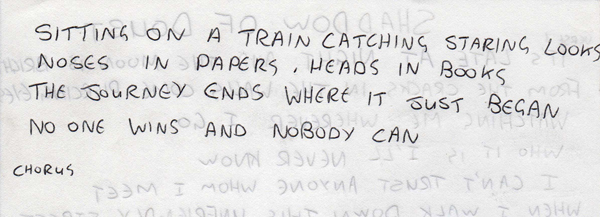 SITTING ON A TRAIN CATCHING STARING LOOKS
NOSES IN PAPERS. HEADS IN BOOKS
THE JOURNEY ENDS WHERE IT JUST BEGAN
NO ONE WINS AND NOBODY CAN
CHORUS